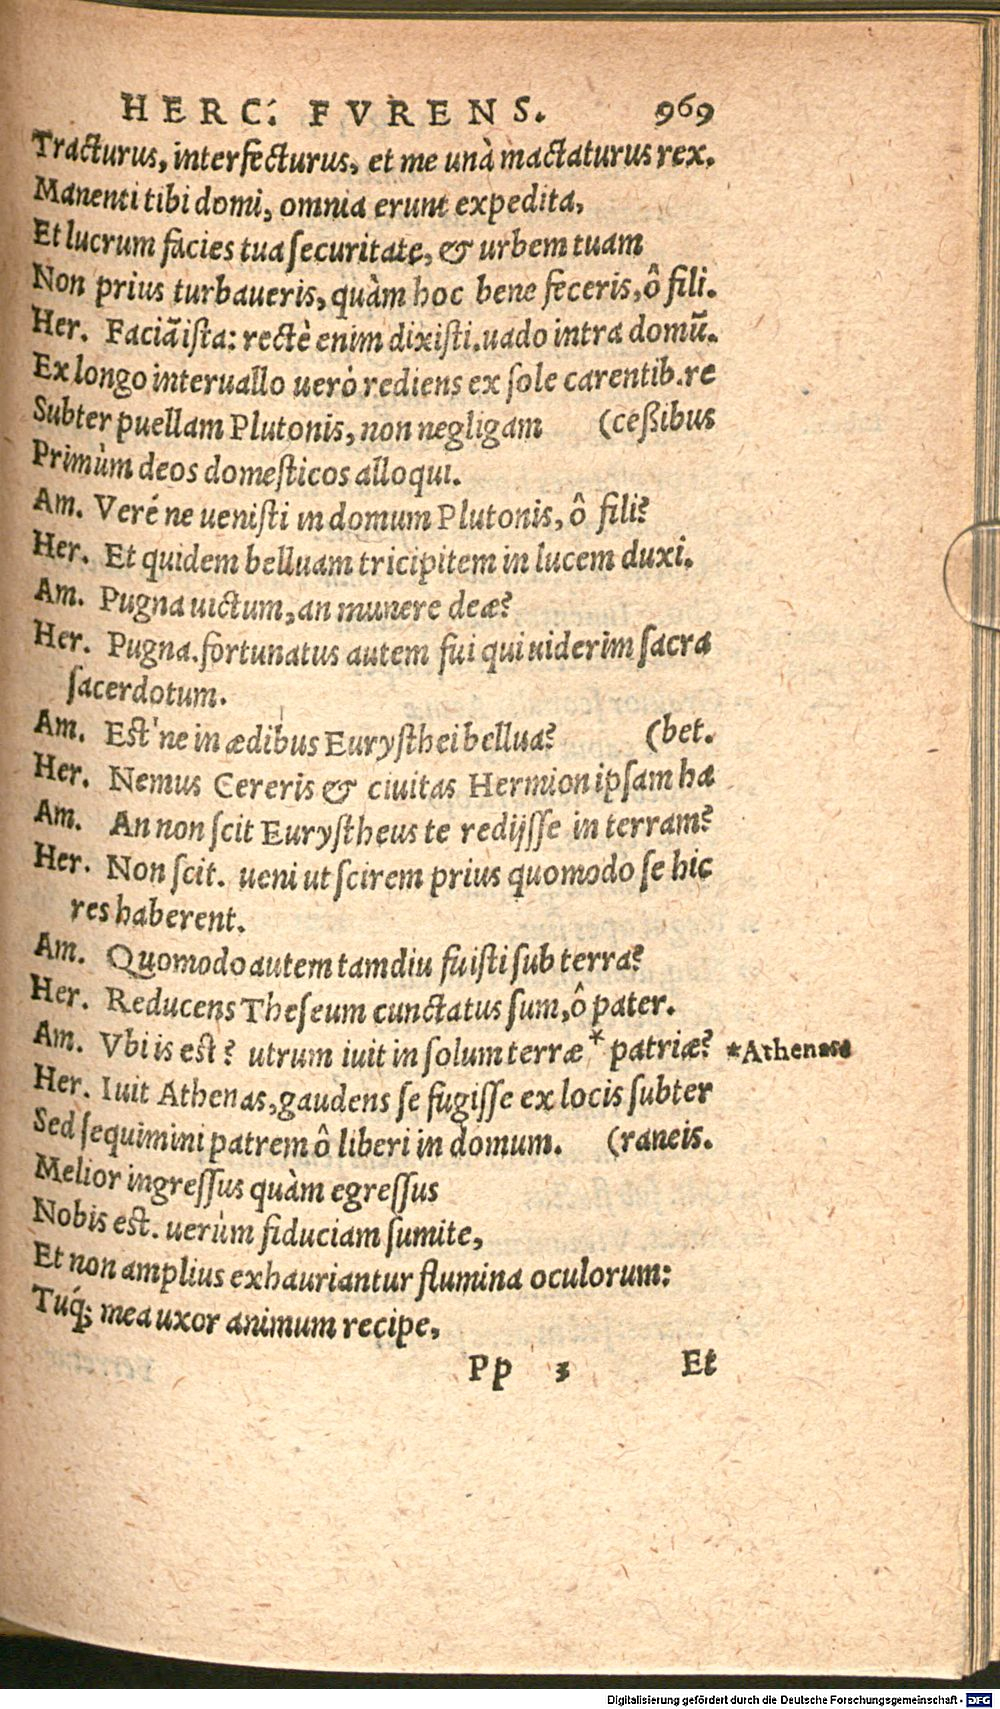 HERC. FVRENS. 969
Tracturus, interfecturus, et me unà mactaturus rex.
Manenti tibi domi, omnia erunt expedita,
Et lucrum facies tua securitate, & urbem tuam
Non prius turbaueris, quàm hoc bene feceris, ô fili.
Her. Faciā ista: rectè enim dixisti. uado intra domū.
Ex longo interuallo uerò rediens ex sole carentib. re
Subter puellam Plutonis, non negligam (ceßibus
Primùm deos domesticos alloqui.
Am. Veréne uenisti in domum Plutonis, ô fili?
Her. Et quidem belluam tricipitem in lucem duxi.
Am. Pugna uictum, an munere deæ?
Her. Pugna. fortunatus autem fui qui uiderim sacra
sacerdotum.
Am. Est'ne in ædibus Eurysthei bellua? (bet.
Her. Nemus Cereris & ciuitas Hermion ipsam ha
Am. An non scit Eurystheus te redijsse in terram?
Her. Non scit. ueni ut scirem prius quomodo se hic
res haberent.
Am. Quomodo autem tamdiu fuisti sub terra?
Her. Reducens Theseum cunctatus sum, ô pater.
Am. Vbi is est? utrum iuit in solum terræ * patriæ? *Athenase
Her. Iuit Athenas, gaudens se fugisse ex locis subter
Sed sequimini patrem ô liberi in domum. (raneis.
Melior ingressus quàm egressus
Nobis est. uerùm fiduciam sumite,
Et non amplius exhauriantur flumina oculorum:
Tuq́; mea uxor animum recipe,
Pp 3 Et
Digitalisierung gefördert durch die Deutsche Forschungsgemeinschaft - DFG